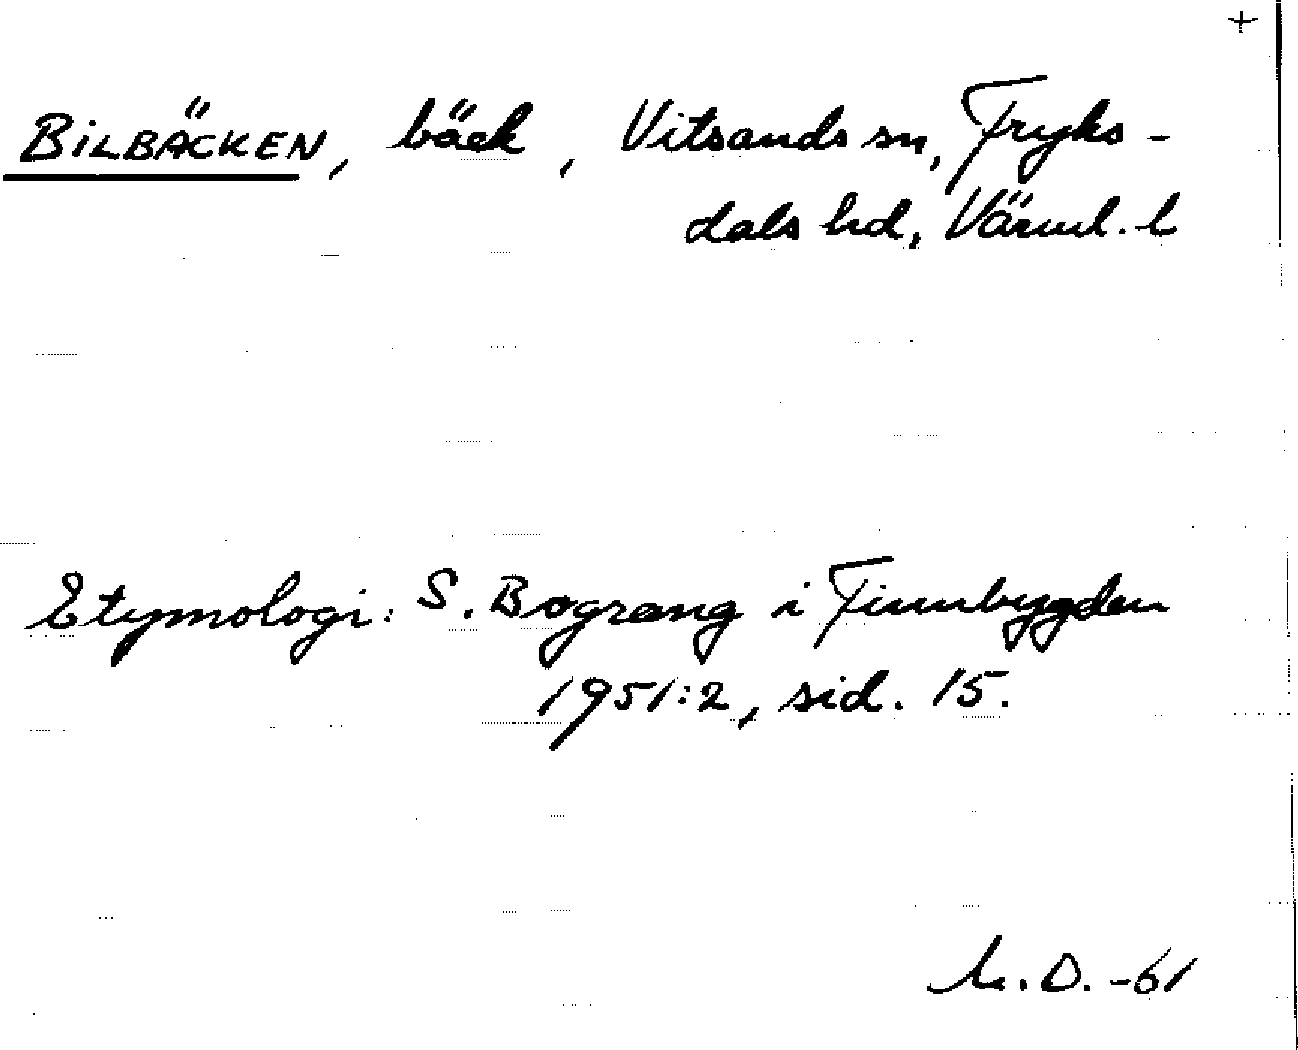 +
BILBÄCKEN, bäck, Vitsands sn, Fryks-
dals hd, Värml. l
Etymologi: S. Bograng i Finnbygden
1951:2, sid. 15.
D. -61